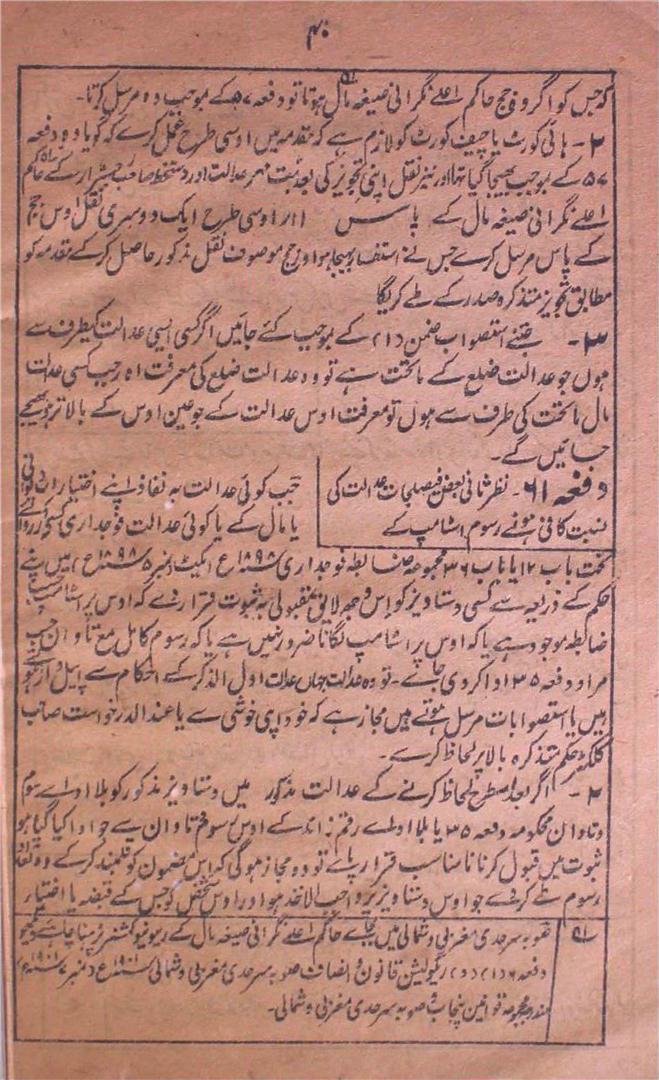 ۴۰
کہ جس کو اگر وہ جج حاکم اعلےٰ نگرانی صیغہ مال ہوتا تو دفعہ ۵۷ کے بموجب وہ مرسل کرتا۔
۲۔ ہائی کورٹ یا چیف کورٹ کو لازم ہے کہ مقدمہ میں اوسی طرح عمل کرے کہ گویا وہ دفعہ
۵۷ کے بموجب بھیجا گیا تھا اور نیز نقل اپنی تجویز کی بعد ثبت مہر عدالت اور دستخط صاحب رجسٹرار کے حاکم
اعلےٰ نگرانی صیغہ مال کے پاس اور اوسی طرح ایک دوسری نقل اوس جج
کے پاس مرسل کرے جس نے استصواب بھیجا ہو اور جج موصوف نقل مذکور حاصل کرکے مقدمہ کو
مطابق تجویز متذکرہ صدر کے طے کریگا
۳۔ جتنے استصواب ضمن (۱) کے بموجب کئے جائیں اگر کسی ایسی عدالت کیطرف سے
ہوں جو عدالت ضلع کے ماتحت ہے تو وہ عدالت ضلع کی معرفت اور جب کسی عدالت
مال ماتحت کی طرف سے ہوں تو معرفت اوس عدالت کے جو عین اوس کے بالاتر ہو بھیجے
جائیں گے۔
دفعہ ۶۱۔ نظر ثانی بعض فیصلجات عدالت کی
نسبت کافی ہونے رسوم اسٹامپ کے
جب کوئی عدالت بہ نفاذ اپنے اختیارات دیوانی
یا مال کے یا کوئی عدالت فوجداری کسی کارروائی
تحت باب ۱۲ یا باب ۳۶ مجموعہ ضابطہ فوجداری ۱۸۹۸ء (ایکٹ نمبر ۵ ۱۸۹۸ء) میں اپنے
حکم کے ذریعہ سے کسی دستاویز کو اس وجہ لایق مقبولی بہ ثبوت قرار دے کہ اوس پر اسٹامپ حسب
ضابطہ موجود ہے یا کہ اوس پر اسٹامپ لگانا ضرور نہیں ہے یا کہ رسوم کامل مع تاوان حسب
مراد دفعہ ۳۵ ادا کر دی جاے۔ تو وہ عدالت جہاں عدالت اول الذکر کے احکام سے اپیل دائر ہو
ہیں یا استصوابات مرسل ہوتے ہیں مجاز ہے کہ خود اپنی خوشی سے یا عند الدرخواست صاحب
کلکٹر حکم متذکرہ بالا پر لحاظ کرے۔
۲۔ اگر بعد اسطرح لحاظ کرنے کے عدالت مذکور میں دستاویز مذکور کو بلا اداے رسوم
و تاوان محکومہ دفعہ ۳۵ یا بلا اداے رقم زائد کے اوس رسوم و تاوان سے جو ادا کیا گیا ہو
ثبوت میں قبول کرنا نامناسب قرار پاے تو وہ مجاز ہوگی کہ اس مضمون کو قلمبند کرکے وہ تعداد
رسوم طے کردے جو اوس دستاویز پر واجب الاخذ ہو اور اوس شخص کو جس کے قبضہ یا اختیار
صوبہ سرحدی مغربی و شمالی میں بجاے حاکم اعلےٰ نگرانی صیغہ مال کے ریونیو کمشنر پڑھنا چاہئے دیکھو
دفعہ ۶ (۱) (د) ریگولیشن قانون و انصاف صوبہ سرحدی مغربی و شمالی ۱۹۰۱ء (نمبر ۷ ۱۹۰۱ء)
مندرجہ مجموعہ قوانین پنجاب و صوبہ سرحدی مغربی و شمالی۔